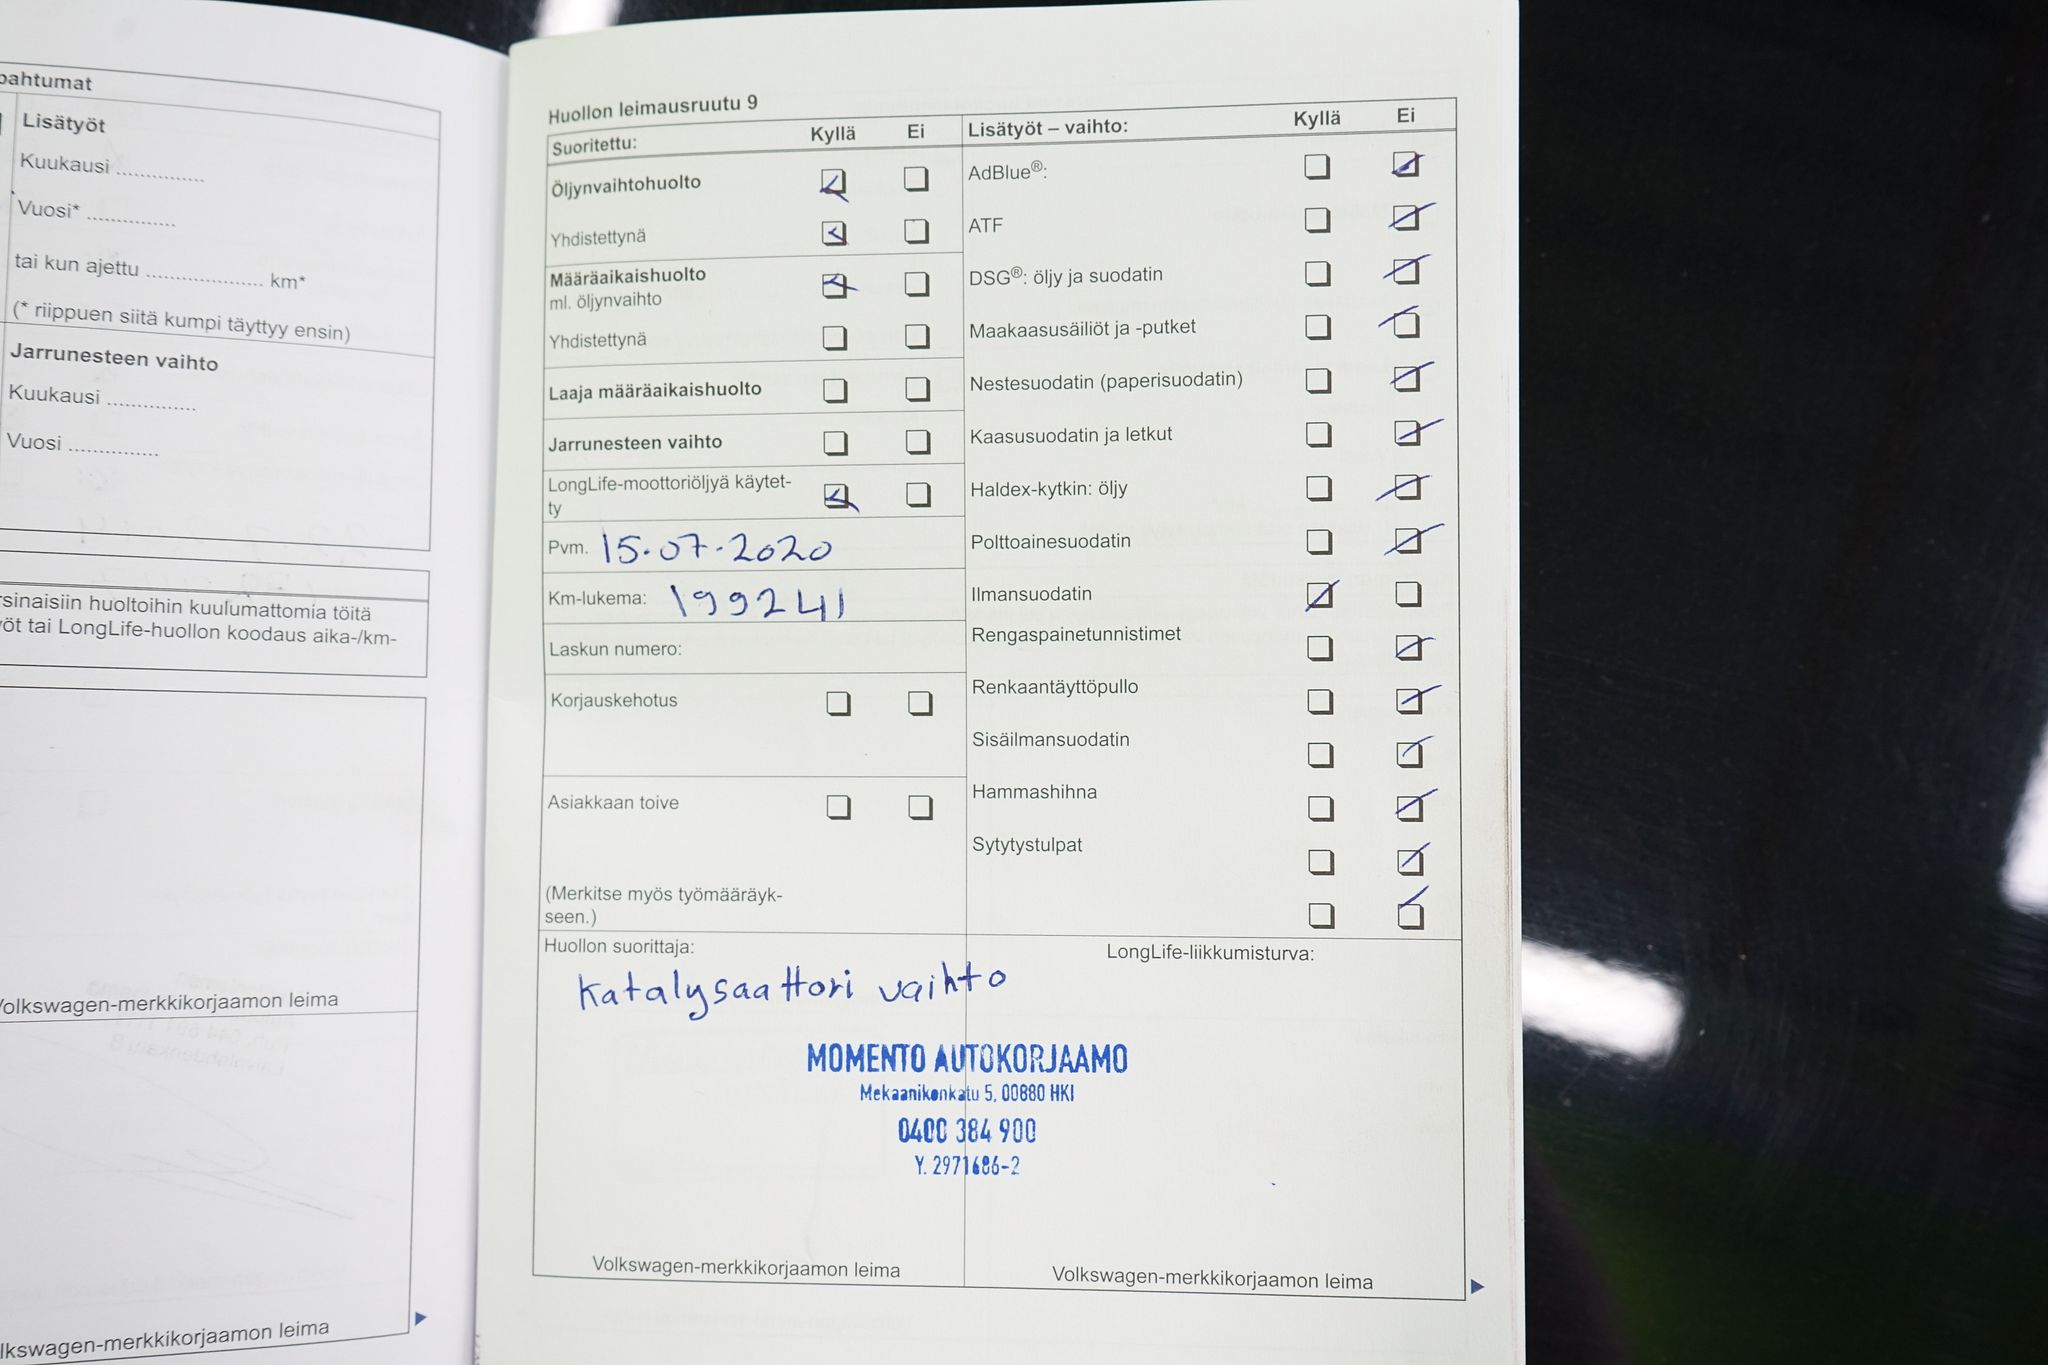 pahtumat
Lisätyöt
Kuukausi ...............
Vuosi* ...............
tai kun ajettu .................... km*
(* riippuen siitä kumpi täyttyy ensin)
Jarrunesteen vaihto
Kuukausi ...............
Vuosi ...............
rsinaisiin huoltoihin kuulumattomia töitä
yöt tai LongLife-huollon koodaus aika-/km-
Volkswagen-merkkikorjaamon leima
lkswagen-merkkikorjaamon leima
Huollon leimausruutu 9
Suoritettu: Kyllä Ei
Öljynvaihtohuolto
Yhdistettynä
Määräaikaishuolto
ml. öljynvaihto
Yhdistettynä
Laaja määräaikaishuolto
Jarrunesteen vaihto
LongLife-moottoriöljyä käytet-
ty
Pvm. 15.07.2020
Km-lukema: 199241
Laskun numero:
Korjauskehotus
Asiakkaan toive
(Merkitse myös työmääräyk-
seen.)
Lisätyöt – vaihto: Kyllä Ei
AdBlue®:
ATF
DSG®: öljy ja suodatin
Maakaasusäiliöt ja -putket
Nestesuodatin (paperisuodatin)
Kaasusuodatin ja letkut
Haldex-kytkin: öljy
Polttoainesuodatin
Ilmansuodatin
Rengaspainetunnistimet
Renkaantäyttöpullo
Sisäilmansuodatin
Hammashihna
Sytytystulpat
Huollon suorittaja:
LongLife-liikkumisturva:
Katalysaattori vaihto
MOMENTO AUTOKORJAAMO
Mekaanikonkatu 5, 00880 HKI
0400 384 900
Y. 2971686-2
Volkswagen-merkkikorjaamon leima
Volkswagen-merkkikorjaamon leima